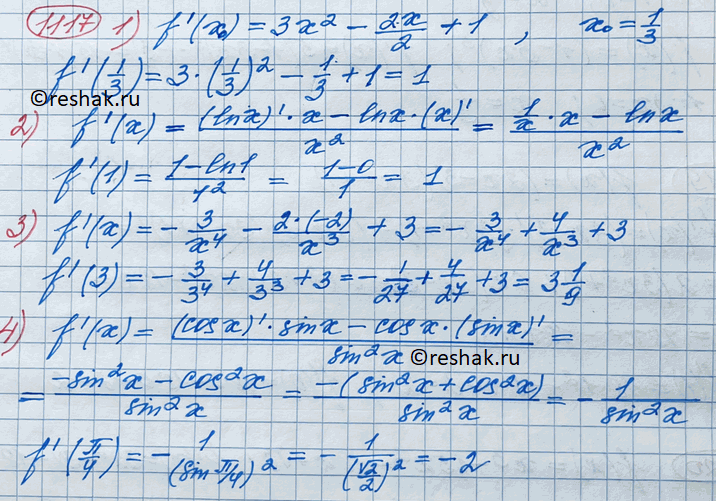 1117 1) f'(x₀) = 3x² - 2x/2 + 1 , x₀ = 1/3
f'(1/3) = 3·(1/3)² - 1/3 + 1 = 1
©reshak.ru
2) f'(x) = ((lnx)'·x - lnx·(x)')/x² = (1/x·x - lnx)/x²
f'(1) = (1-ln1)/1² = (1-0)/1 = 1
3) f'(x) = -3/x⁴ - 2·(-2)/x³ + 3 = -3/x⁴ + 4/x³ + 3
f'(3) = -3/3⁴ + 4/3³ + 3 = -1/27 + 4/27 + 3 = 3 1/9
4) f'(x) = ((cosx)'·sinx - cosx·(sinx)')/sin²x =
©reshak.ru
= (-sin²x - cos²x)/sin²x = -(sin²x + cos²x)/sin²x = -1/sin²x
f'(π/4) = -1/(sin π/4)² = -1/(√2/2)² = -2